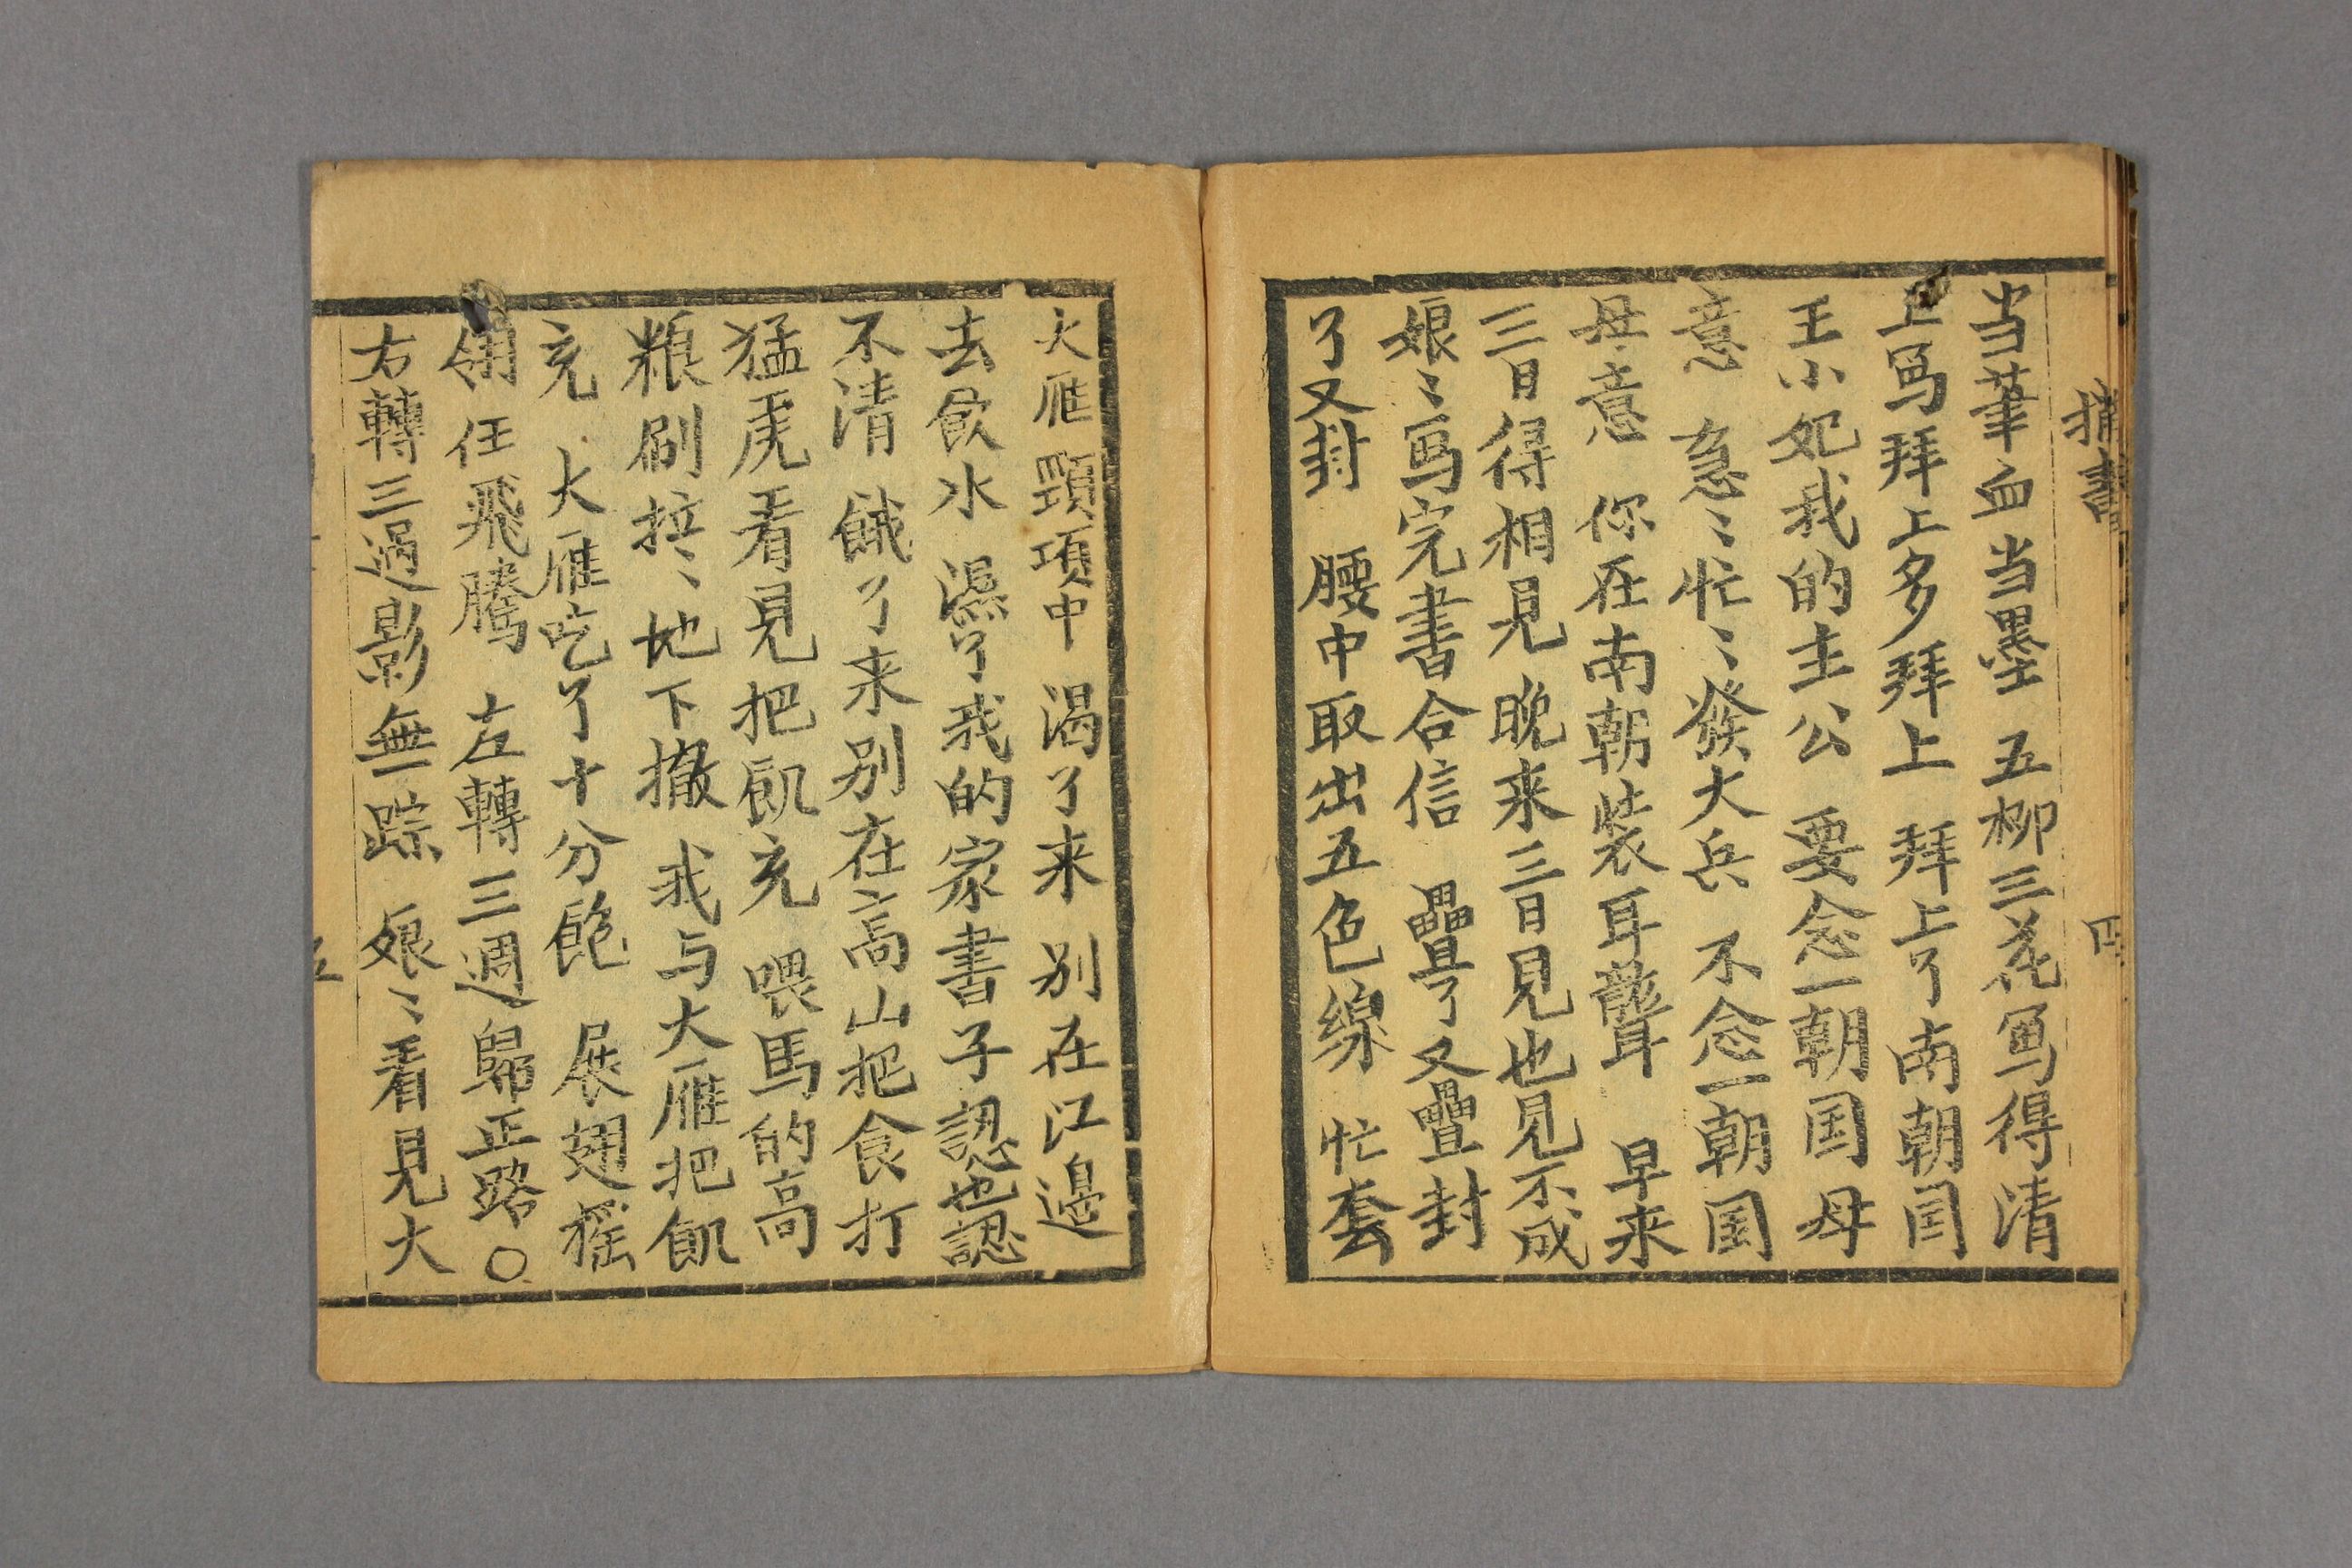 捎書
四
当筆血当墨 五柳三花寫得清
上寫拜上多拜上 拜上了南朝囯
王小妃我的主公 要念一朝国母
意 急〻忙〻發大兵 不念一朝国
母意 你在南朝装耳聾 早来
三日得相見 晚来三日見也見不成
娘〻寫完書合信 疊了又疊封
了又封 腰中取出五色線 忙套
大雁頸項中 渴了来 别在江邉
去飲水 濕了我的家書子 認也認
不清 餓了来 别在高山把食打
猛虎看見把飢充 喂馬的高
粮刷拉〻地下撒 我与大雁把飢
充 大雁吃了十分飽 展翅搖
翎任飛騰 左轉三週歸正路〇
右轉三過影無踪 娘〻看見大